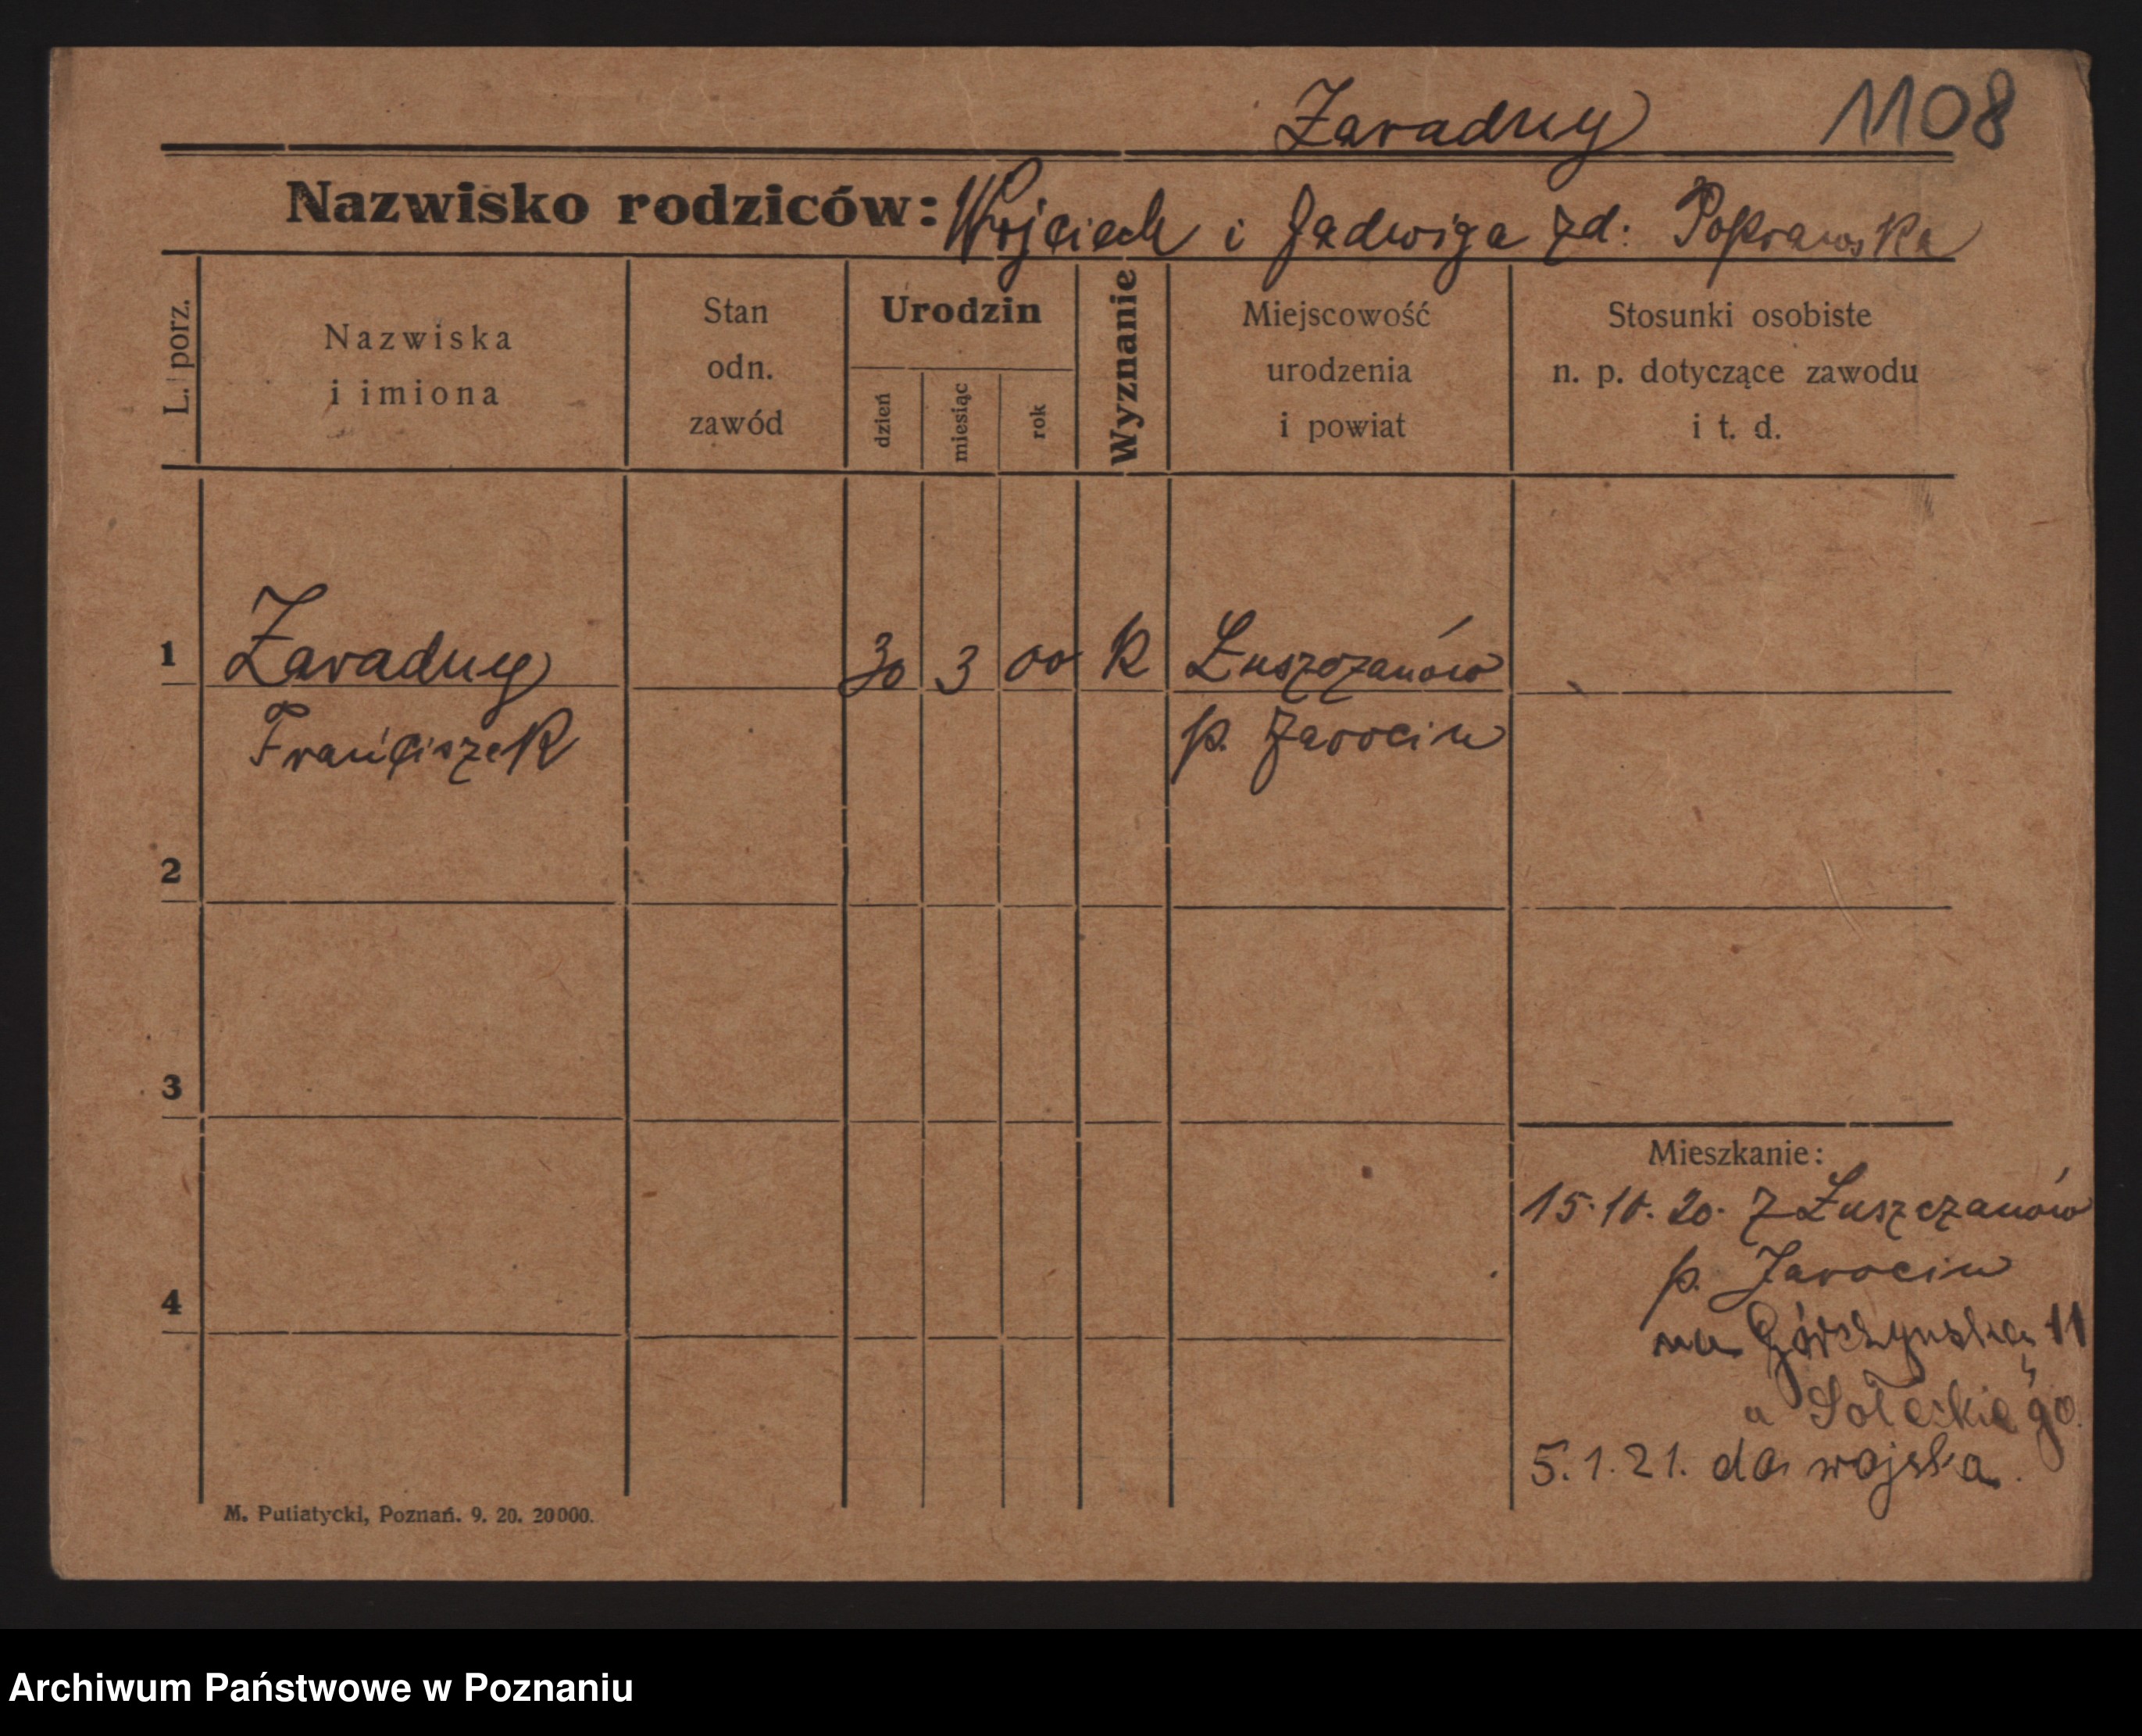 Zaradny 1108
Nazwisko rodziców: Wojciech i Jadwiga zd: Poprawska
L. porz.
Nazwiska
i imiona
Stan
odn.
zawód
Urodzin
dzień
miesiąc
rok
Wyznanie
Miejscowość
urodzenia
i powiat
Stosunki osobiste
n. p. dotyczące zawodu
i t. d.
1 Zaradny 30 3 00 K Łuszczanów
Franciszek p. Jarocin
2
3
4
Mieszkanie:
15.10.20. z Łuszczanów
p. Jarocin
na Górczyńską 11
u Sołeckiego.
5.1.21. do wojska.
M. Putiatycki, Poznań. 9. 20. 20000.
Archiwum Państwowe w Poznaniu